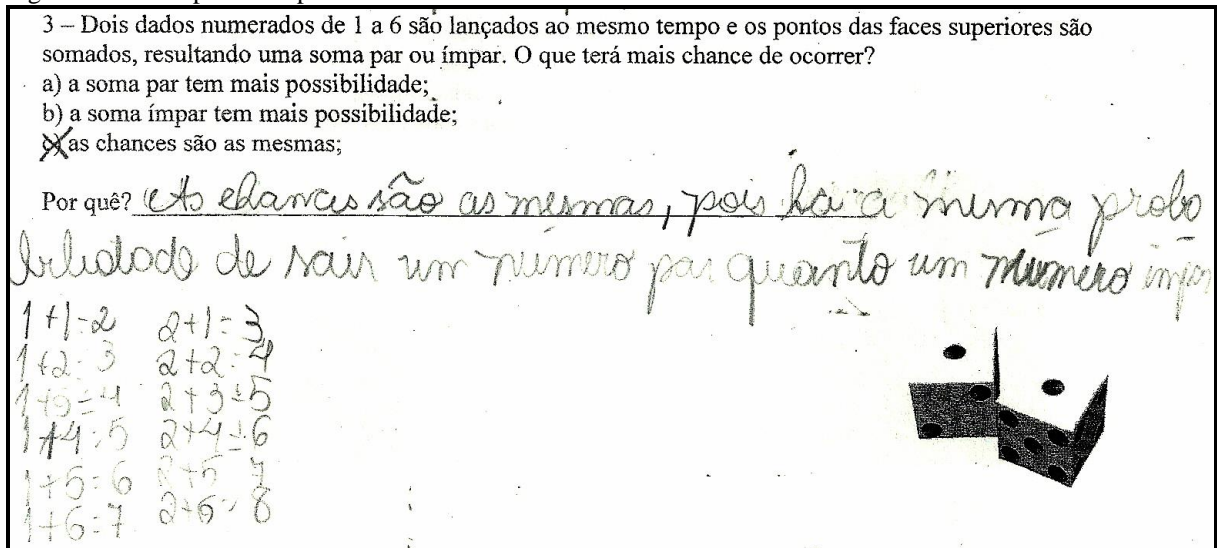 3 – Dois dados numerados de 1 a 6 são lançados ao mesmo tempo e os pontos das faces superiores são
somados, resultando uma soma par ou ímpar. O que terá mais chance de ocorrer?
a) a soma par tem mais possibilidade;
b) a soma ímpar tem mais possibilidade;
c) as chances são as mesmas;
Por quê? As chances são as mesmas, pois há a mesma proba
bilidade de sair um número par quanto um número impar
1+1=2 2+1=3
1+2=3 2+2=4
1+3=4 2+3=5
1+4=5 2+4=6
1+5=6 2+5=7
1+6=7 2+6=8